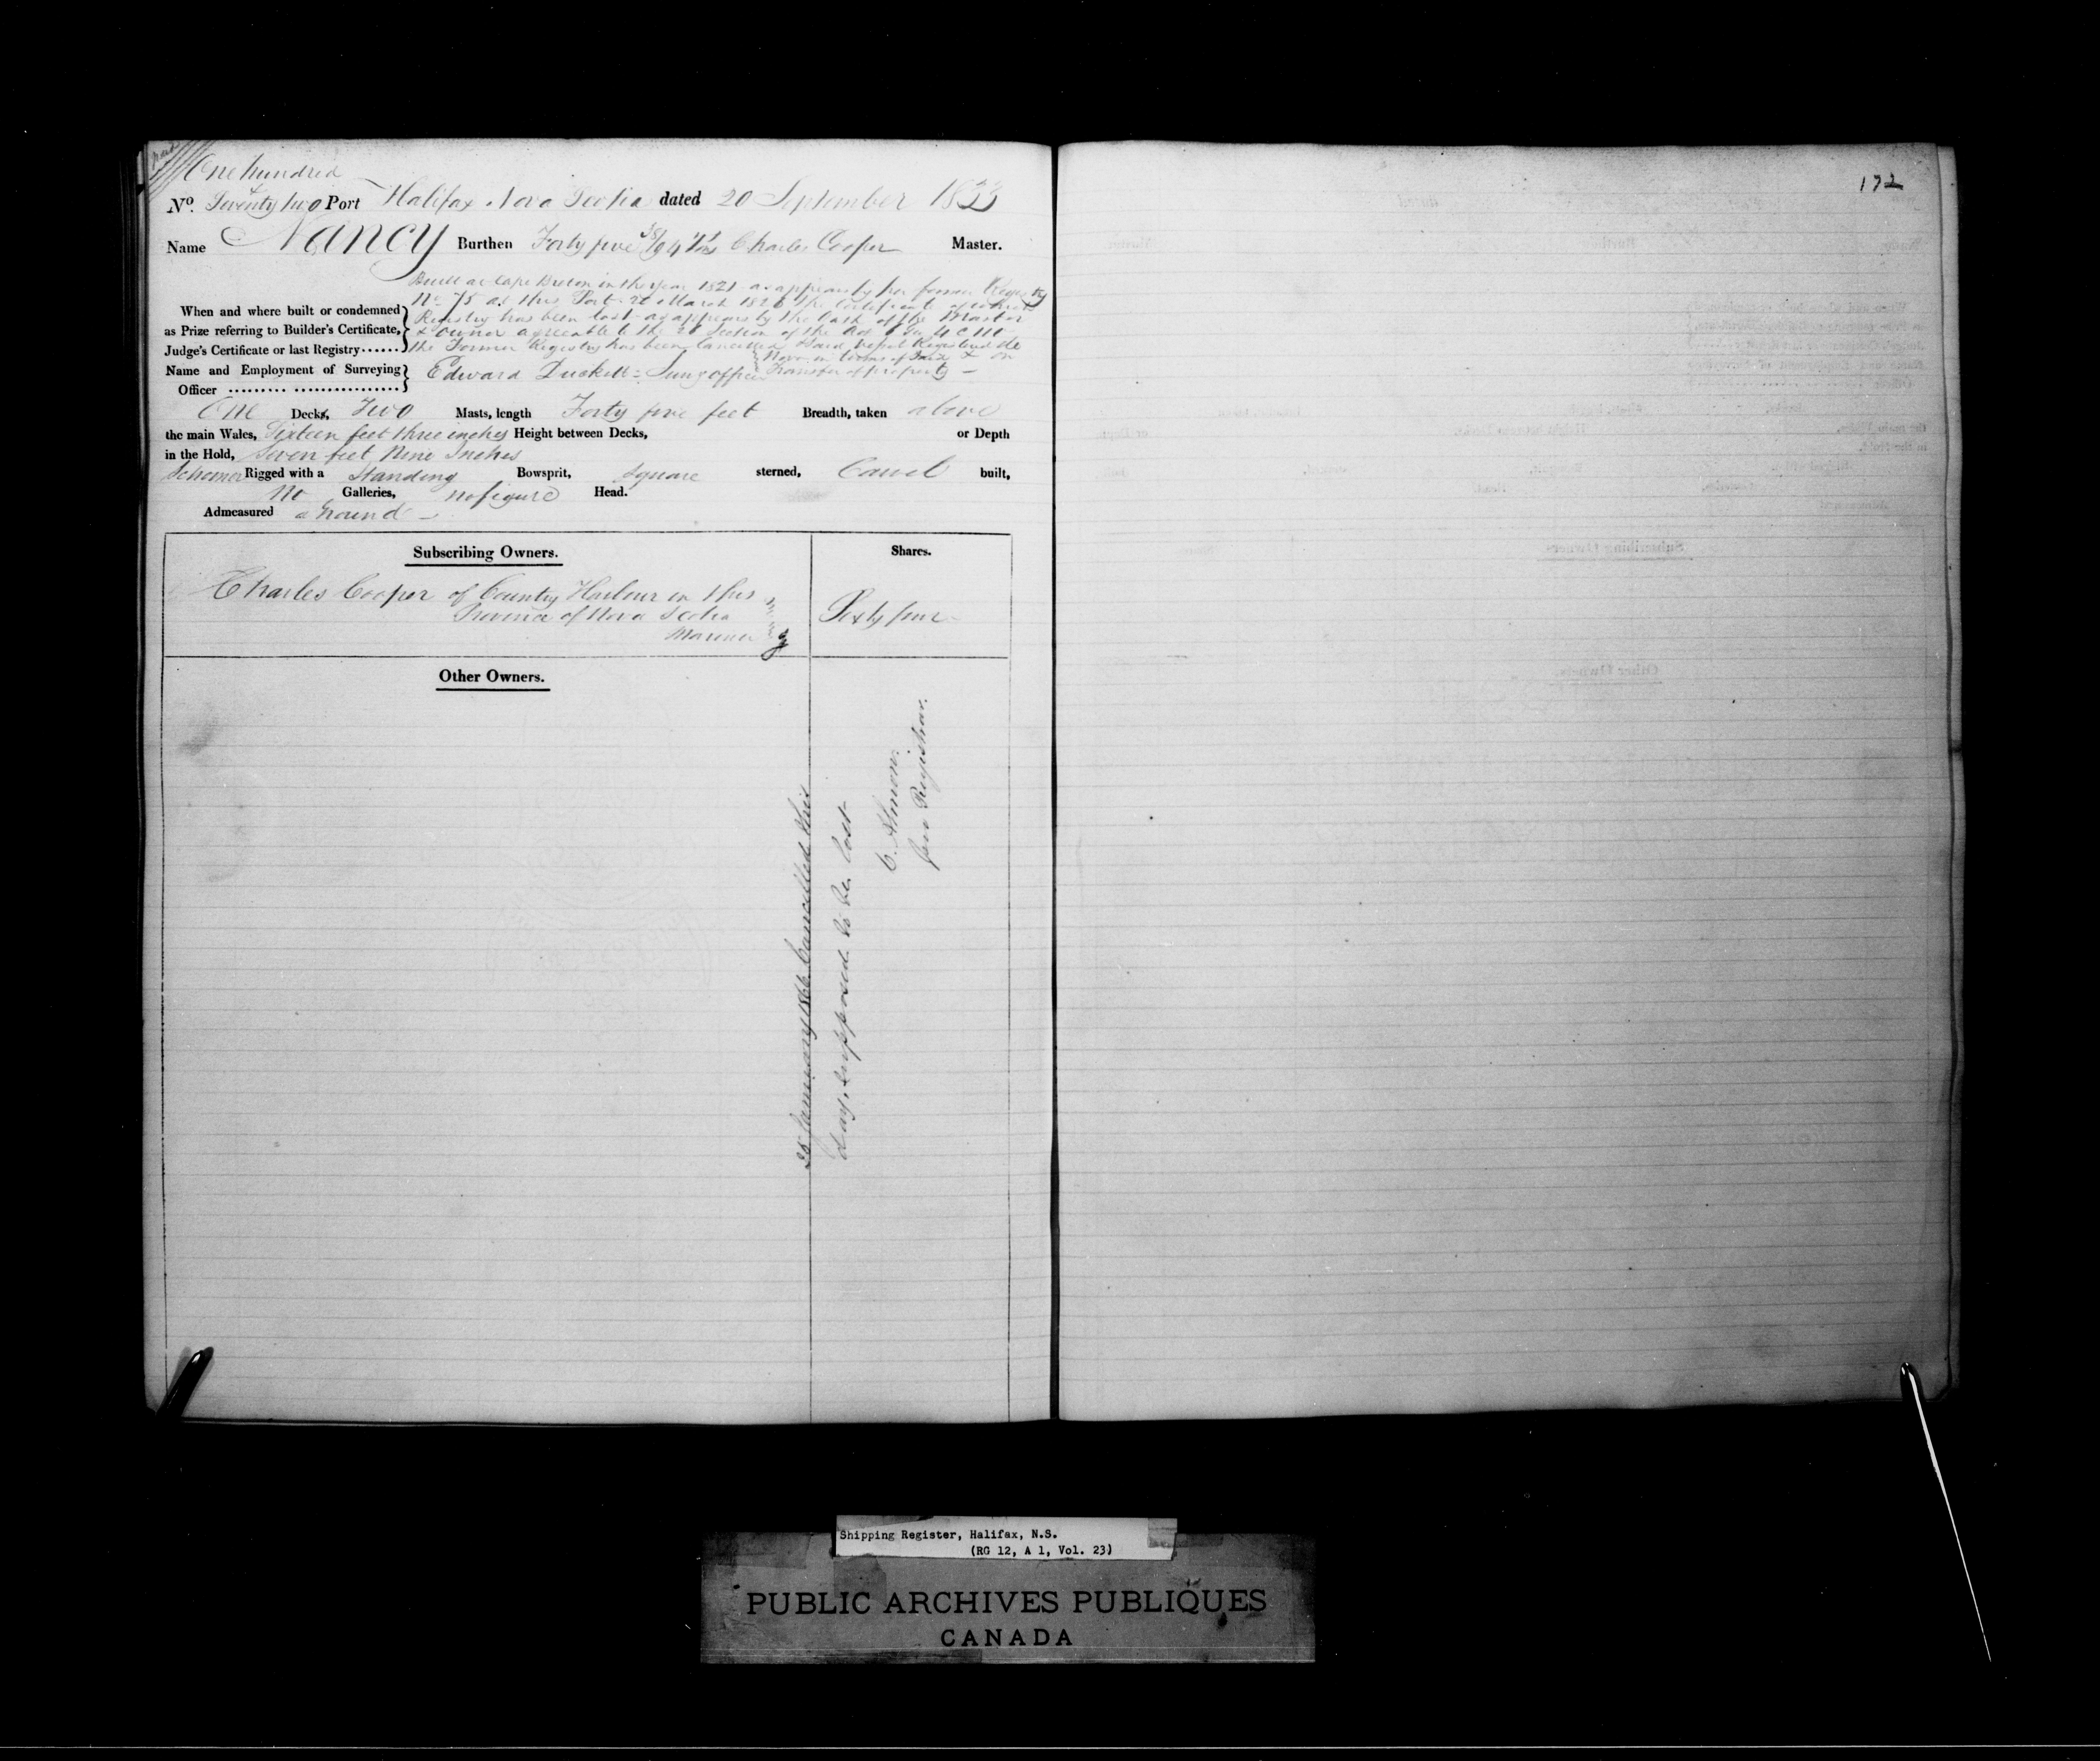 One hundred
& Seventy two
No. Port Halifax Nova Scotia dated 20 September 1833
Name Nancy Burthen Forty five 38/94 Tns Charles Cooper Master.
Built at Cape Breton in the year 1821 as appears by her former Registry
No 75 at this Port 20 March 1826 the Certificate of which
When and where built or condemned Registry has been lost as appears by the Oath of the Master
as Prize referring to Builder's Certificate, & owner agreeable to the 28 Section of the Act
Judge's Certificate or last Registry...... the Former Registry has been Cancelled Said vessel Registered de
Novo in terms of & on
Name and Employment of Surveying Edward Duckett Survg officer Transfer of property
Officer
One Decks, Two Masts, length Forty five feet Breadth, taken above
the main Wales, Sixteen feet three inches Height between Decks, or Depth
in the Hold, Seven feet Nine Inches
Schooner Rigged with a Standing Bowsprit, Square sterned, Carvel built,
No Galleries, no figure Head.
Admeasured aground
Subscribing Owners. Shares.
Charles Cooper of Country Harbour in this
Province of Nova Scotia Sixty four
Mariner
Other Owners.
28 January 1866 Cancelled this
day, supposed to be lost
C. Almon.
for Registrar.
172
Shipping Register, Halifax, N.S.
(RG 12, A 1, Vol. 23)
PUBLIC ARCHIVES PUBLIQUES
CANADA